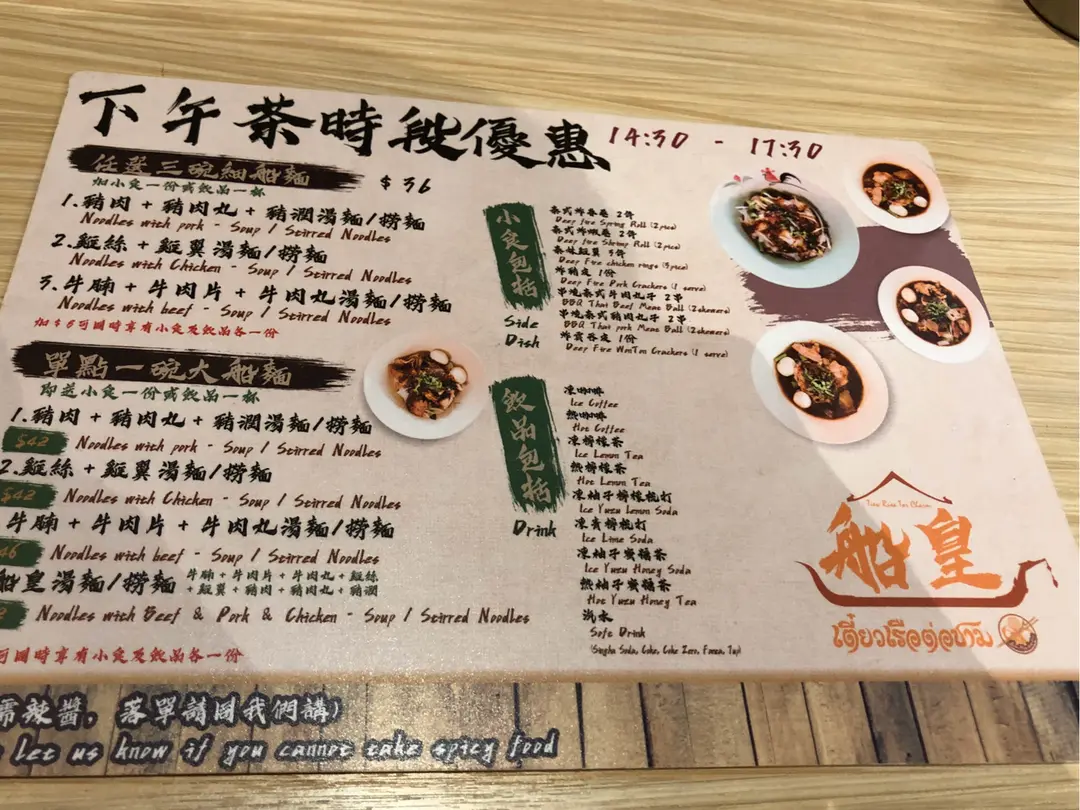 下午茶時段優惠 14:30 - 17:30
任選三碗細船麵 $36
加小食一份或飲品一杯
1.豬肉 + 豬肉丸 + 豬潤湯麵/撈麵
Noodles with pork - Soup / Stirred Noodles
2.雞絲 + 雞翼湯麵/撈麵
Noodles with Chicken - Soup / Stirred Noodles
3.牛腩 + 牛肉片 + 牛肉丸湯麵/撈麵
Noodles with beef - Soup / Stirred Noodles
加$6可同時享有小食及飲品各一份
單點一碗大船麵
即送小食一份或飲品一杯
1.豬肉 + 豬肉丸 + 豬潤湯麵/撈麵
$42 Noodles with pork - Soup / Stirred Noodles
2.雞絲 + 雞翼湯麵/撈麵
$42 Noodles with Chicken - Soup / Stirred Noodles
牛腩 + 牛肉片 + 牛肉丸湯麵/撈麵
46 Noodles with beef - Soup / Stirred Noodles
船皇湯麵/撈麵 牛腩 + 牛肉片 + 牛肉丸 + 雞絲
+ 雞翼 + 豬肉 + 豬肉丸 + 豬潤
Noodles with Beef & Pork & Chicken - Soup / Stirred Noodles
可同時享有小食及飲品各一份
小食包括
Side
Dish
泰式炸春卷 2件
Deep Fire Spring Roll (2pice)
泰式炸蝦卷 2件
Deep fire Shrimp Roll (2pice)
Deep Fire chicken rings (3pice)
炸豬皮 1份
Deep Fire Pork Crackers (1 serve)
串燒泰式牛肉丸子 2串
BBQ Thai Beef Meat Ball (2skewers)
串燒泰式豬肉丸子 2串
BBQ Thai pork Meat Ball (2skewers)
炸雲吞皮 1份
Deep Fire WonTon Crackers (1 serve)
飲品包括
Drink
凍咖啡
Ice Coffee
熱咖啡
Hot Coffee
凍檸檬茶
Ice Lemn Tea
熱檸檬茶
Hot Lemn Tea
凍柚子檸檬梳打
Ice Yuzu Lemn Soda
凍青檸梳打
Ice Lime Soda
凍柚子蜜糖茶
Ice Yuzu Honey Soda
熱柚子蜜糖茶
Hot Yuzu Honey Tea
汽水
Soft Drink
(Singha Soda, Coke, Coke Zero, Fanta, 7up)
船皇
เตี๋ยวเรือต่อชาม
需辣醬，落單請同我們講)
Let us know if you cannot take spicy food